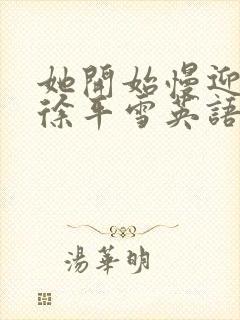 她開始慢迎
徐平雪英語
湯華明